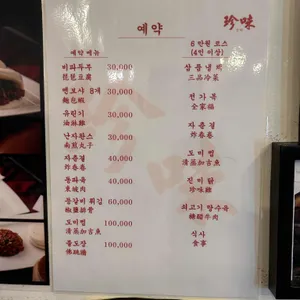 예약
珍味
예약 메뉴
비파두부 30,000
琵琶豆腐
멘보샤 8개 30,000
麵包蝦
유린기 30,000
油淋雞
난자완스 30,000
南煎丸子
자춘결 40,000
炸春卷
동파육 40,000
東坡肉
통갈비 튀김 60,000
椒鹽排骨
도미찜 100,000
清蒸加吉魚
불도장 100,000
佛跳牆
6 만원 코스
(4인 이상)
삼품냉채
三品冷菜
전가복
全家福
자춘결
炸春卷
도미찜
清蒸加吉魚
진미닭
珍味雞
쇠고기 탕수육
糖醋牛肉
식사
食事